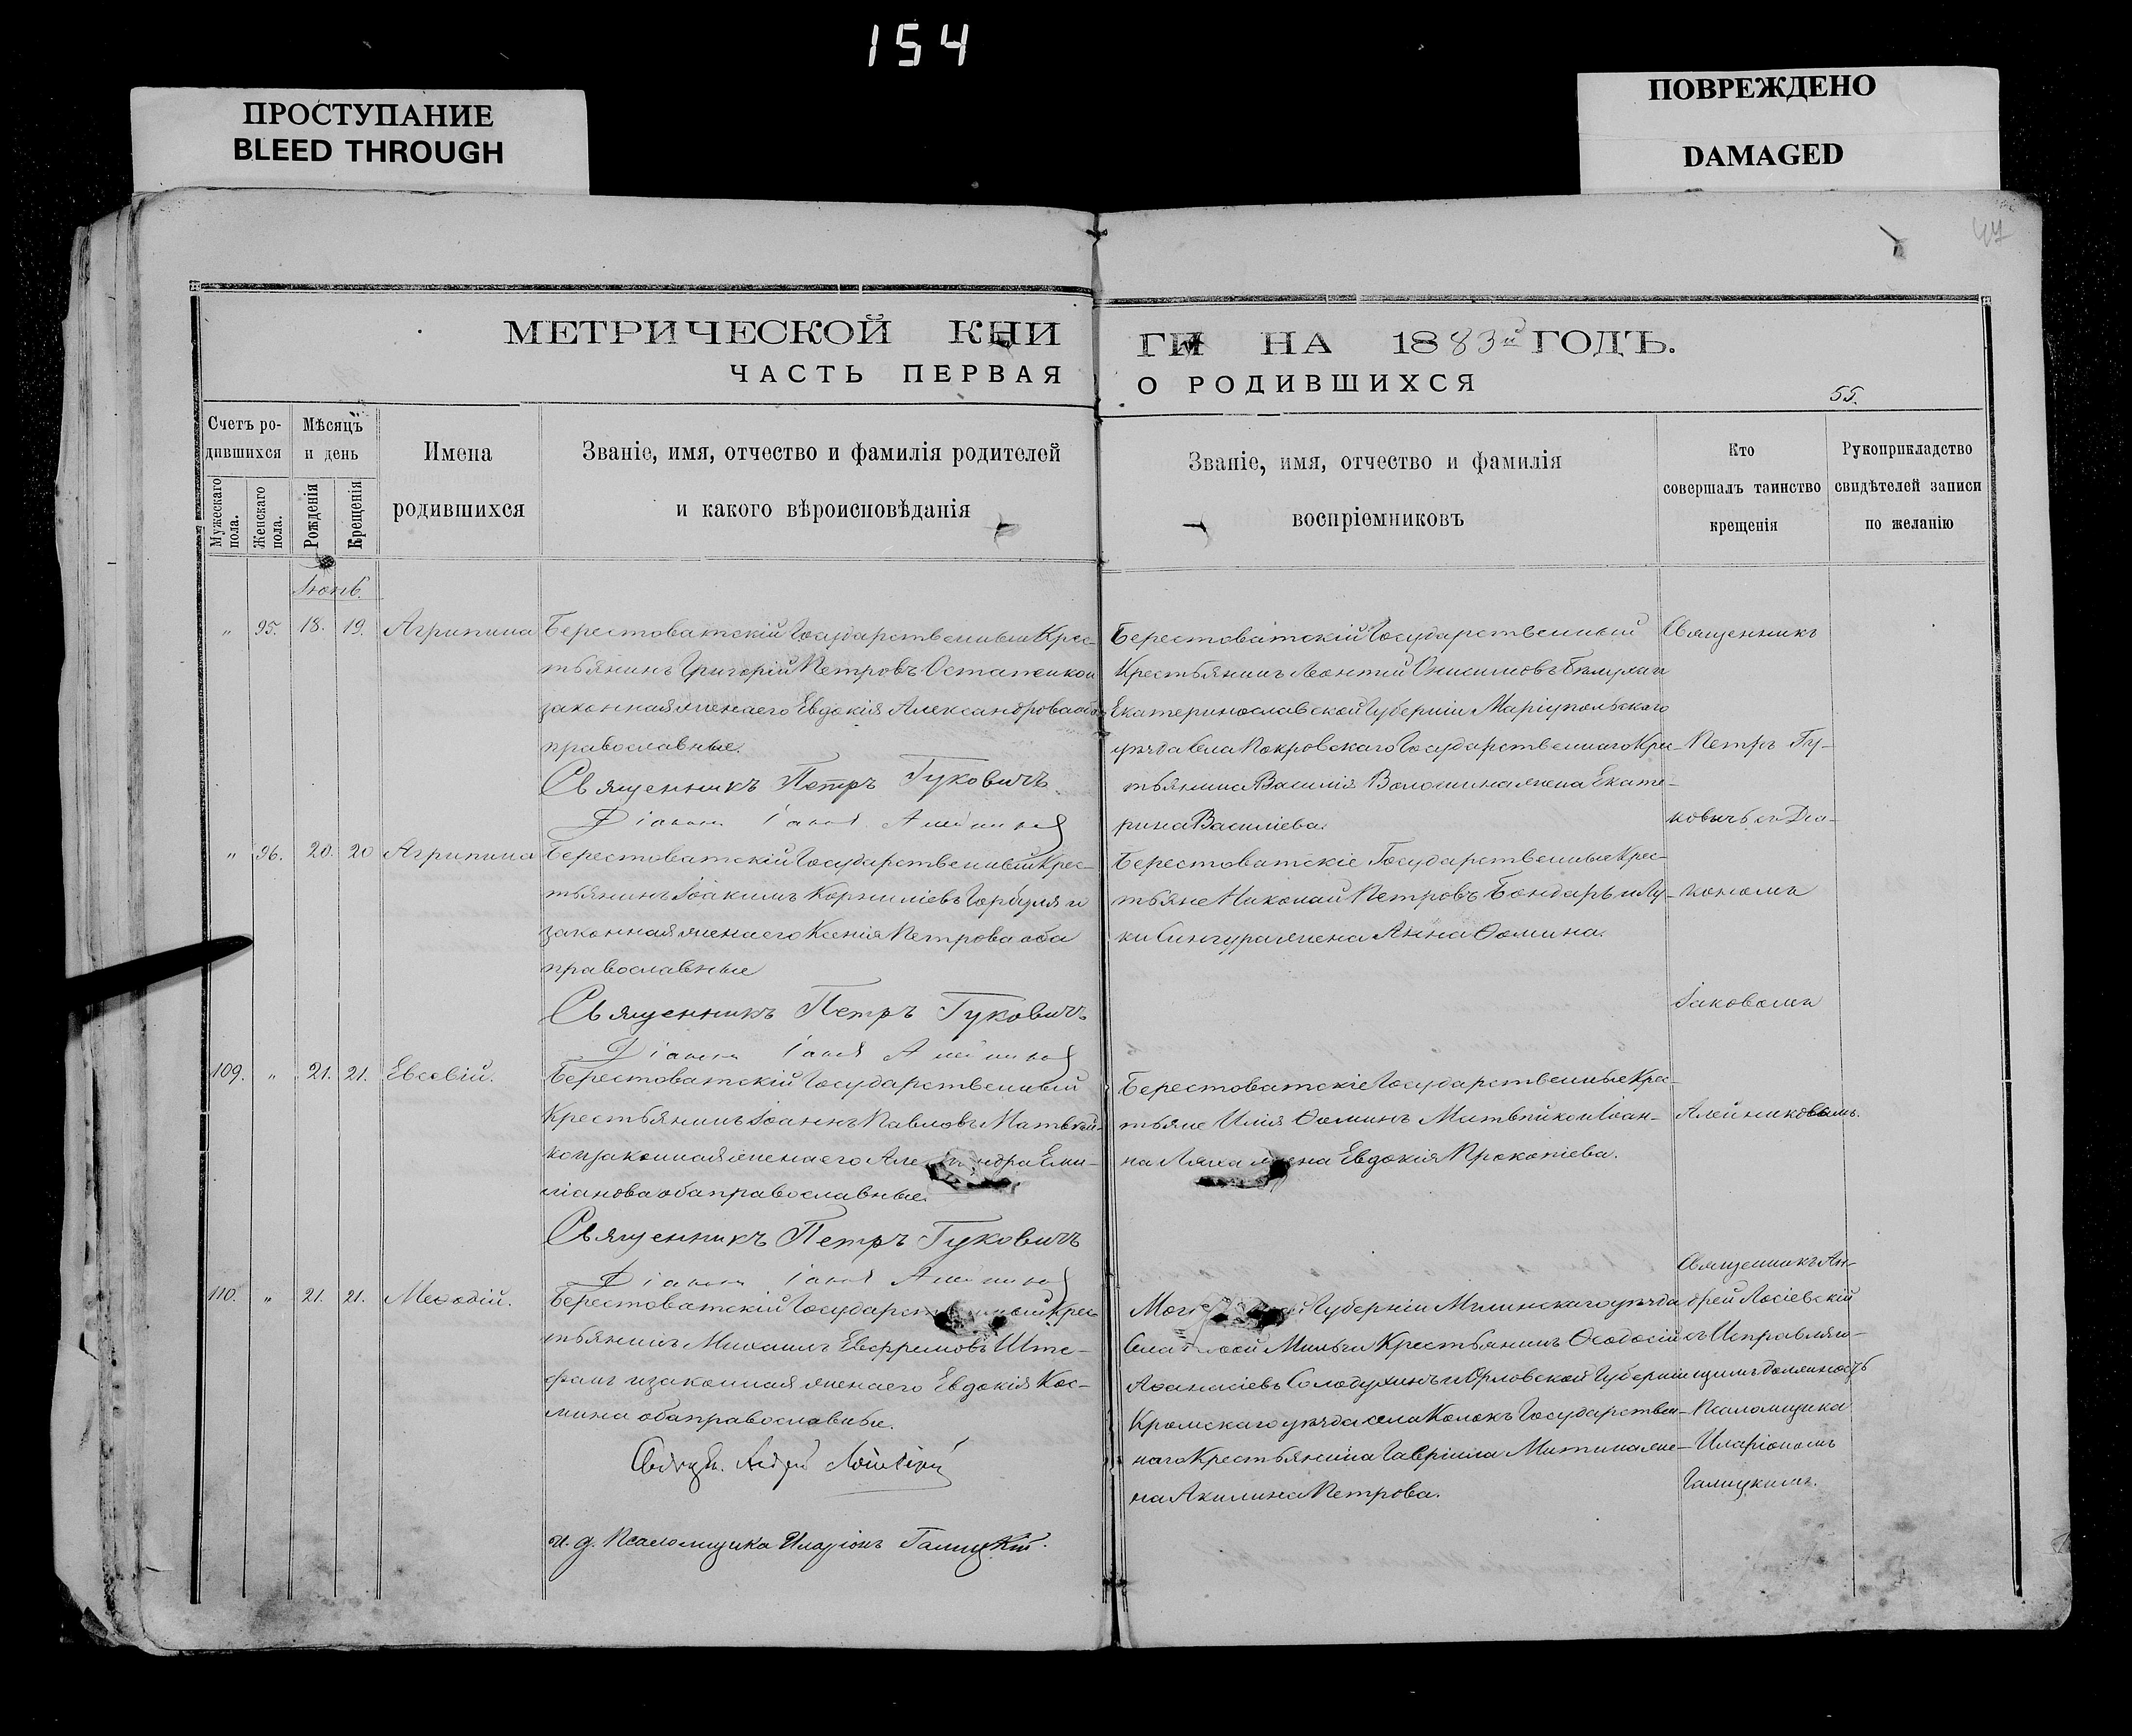 154
ПРОСТУПАНИЕ
BLEED THROUGH
ПОВРЕЖДЕНО
DAMAGED
47
МЕТРИЧЕСКОЙ КНИ
ЧАСТЬ ПЕРВАЯ
ГИ НА 1883й ГОДЪ.
О РОДИВШИХСЯ
55.
Счетъ ро-
дившихся
Мужескаго пола.
Женскаго пола.
Мѣсяцъ
и день
Рожденія
Крещенія
Имена
родившихся
Званіе, имя, отчество и фамилія родителей
и какого вѣроисповѣданія
Званіе, имя, отчество и фамилія
воспріемниковъ
Кто
совершалъ таинство
крещенія
Рукоприкладство
свидѣтелей записи
по желанію
Іюнь.
" 95. 18. 19. Агрипина
Берестоватскій Государственный Крес-
тьянинъ Григорій Петровъ Остапенко и
законная жена его Евдокія Александрова оба
православные.
Священникъ Петръ Гуковичъ.
Діаконъ
Берестоватскій Государственный
Крестьянинъ Леонтій Онисимовъ и
Екатеринославской Губерніи Маріупольскаго
уѣзда Села Покровскаго Государственнаго Кре-
стьянина Василія Волошина жена Екате-
рина Василіева.
Священникъ
Петръ Гу-
ковичъ съ Діа-
кономъ
Іаковомъ
Алейниковымъ.
" 96. 20. 20 Агрипина
Берестоватскій Государственный Крес-
тьянинъ Іоакимъ Корниліевъ Горбуля и
законная жена его Ксенія Петрова оба
православные
Священникъ Петръ Гуковичъ
Діаконъ
Берестоватскіе Государственные Крес-
тьяне Николай Петровъ Бондарь и Лу-
ки Сингура жена Анна Ѳомина.
109. " 21. 21. Евсевій.
Берестоватскій Государственный
Крестьянинъ Іоаннъ Павловъ Матвѣй-
ко и законная жена его Але ндра Еми-
ліанова оба православные.
Священникъ Петръ Гуковичъ
Діаконъ
Берестоватскіе Государственные Крес-
тьяне Илія Ѳоминъ Матвѣйко и Іоан-
на Ляха жена Евдокія Прокопіева.
110. " 21. 21. Меѳодій.
Берестоватскій Государст ный Крес-
тьянинъ Михаилъ Евфремовъ Ште-
фанъ и законная жена его Евдокія Кос-
мина оба православные.
и. д. Псаломщика Иларіонъ Галицкій.
Моги й Губерніи Мглинскаго уѣзда
Села Крестьянинъ Ѳеодосій
Аѳанасіевъ Солодухинъ и Орловской Губерніи
Кромскаго уѣзда села Колокъ Государствен-
наго Крестьянина Гавріила Митина же-
на Акилина Петрова.
Священникъ Ан-
дрей Лосіевскій
съ Исправляю-
щимъ должность
Псаломщика
Иларіономъ
Галицкимъ.